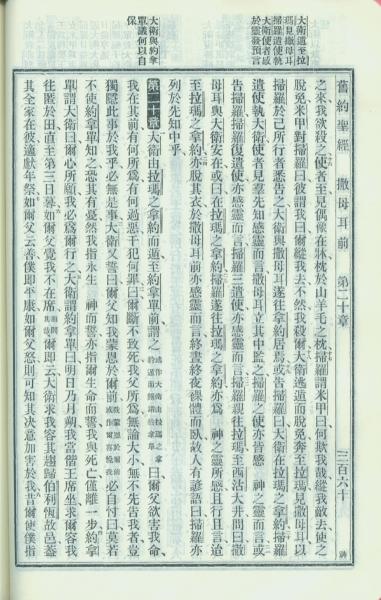 大衛遁至拉
瑪見撒母耳
掃羅遣使執
大衛使者咸
於靈發預言
大衛與約拿
單議何以自
保
舊約聖經 撒母耳前 第二十章 三百六十
之來我欲殺之使者至見偶像在牀枕於山羊毛之枕掃羅謂米甲曰何欺我哉縱我敵去使之
脫免米甲對掃羅曰彼謂我曰爾縱我去不然我殺爾大衛逃遁而脫免奔至拉瑪見撒母耳以
掃羅於己所行者悉告之大衛與撒母耳遂往拿約居焉或告掃羅曰大衛在拉瑪之拿約掃羅
遣使執大衛使者見羣先知感靈而言撒母耳立其中監之掃羅之使亦皆感 神之靈而言或
告掃羅掃羅復遣使亦感靈而言掃羅三遣使亦感靈而言掃羅親往拉瑪至西沽大井問曰撒
母耳與大衛安在或曰在拉瑪之拿約掃羅遂往拉瑪之拿約亦爲 神之靈所感且行且言迨
至拉瑪之拿約亦脫其衣於撒母耳前亦感靈而言終晝終夜裸體而臥故人有諺語曰掃羅亦
列於先知中乎
第二十章 大衛由拉瑪之拿約而遁至約拿單前謂之曰爾父欲害我命
我在其前有何所爲有何過愆干犯何罪曰爾斷不致死我父所爲無論大小無不先告我者豈
獨隱此事於我乎必無是事大衛又誓曰爾父知我蒙恩於爾前必自忖曰莫若
不使約拿單知之恐其有憂然我指永生 神而誓亦指爾生命而誓我與死亡僅離一步約拿
單謂大衛曰爾心所願我必爲爾行之大衛謂約拿單曰明日乃月朔我當偕王席坐求爾容我
往匿於田直至第三日暮如爾父覺我不在席則云大衛求我容其趨歸伯利恆故邑蓋
其全家在彼遠獻年祭如爾父云善僕即平康如爾父怒則可知其決意加害於我昔爾使僕指